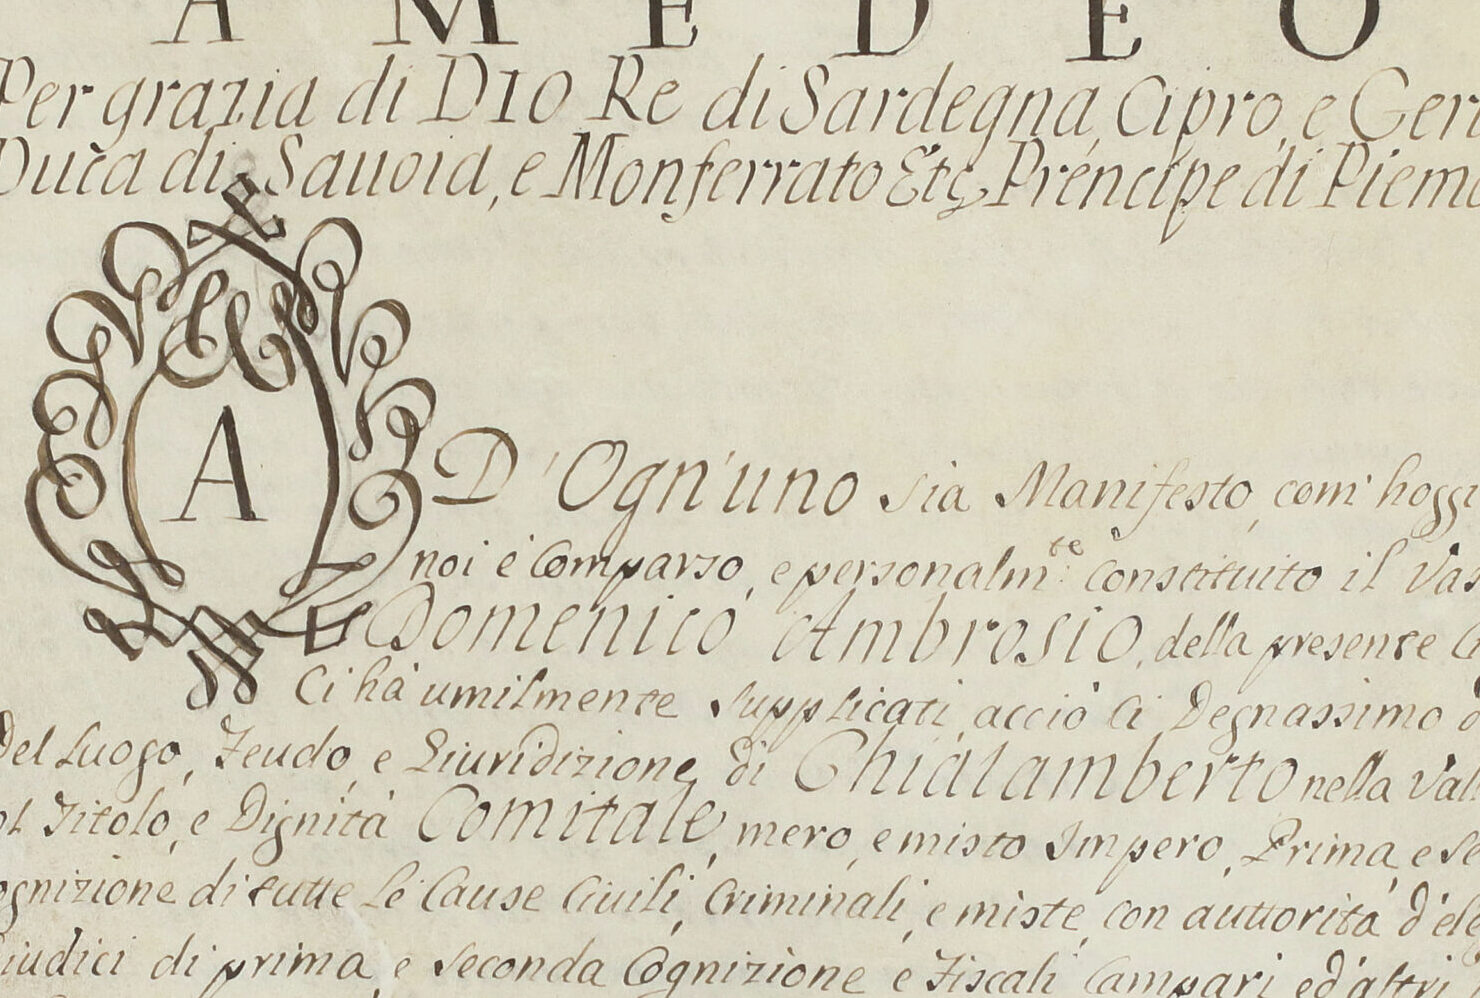 AMEDEO
Per grazia di DIO Re di Sardegna, Cipro, e Ger
Duca di Sauoia, e Monferrato Etc, Prencipe di Piem
A D'Ogn'uno sia Manifesto, com' hoggi
noi é Comparso, e personalm.te Constituito il Vas
Domenico Ambrosio, della presente
Ci há umilmente supplicati, acció ci Degnassimo
Del Luogo, Feudo, e Giuridizione, di Chialamberto nella Vall
ol Titolo, e Dignitá Comitale, mero, e misto Impero, Prima, e se
ognizione di tutte le Cause Ciuili, Criminali, e miste, con auttoritá d'ele
iudici di prima, e seconda Cognizione e Fiscali Campari ed'altri